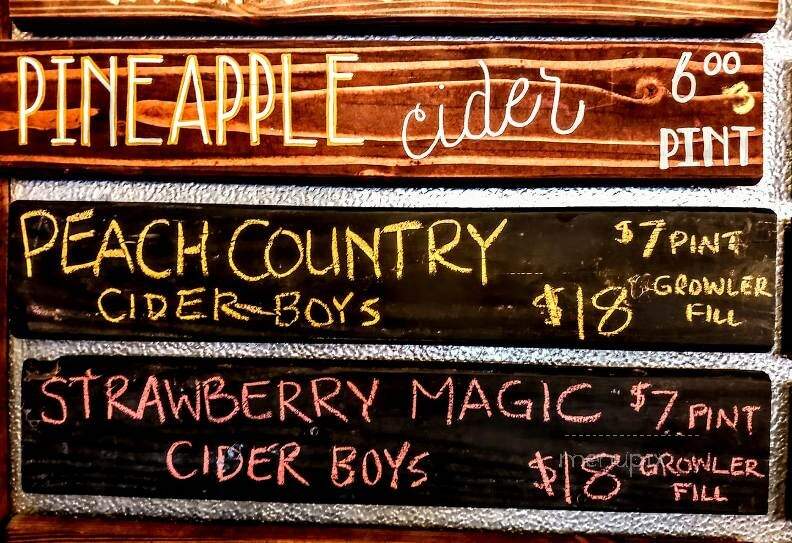 PINEAPPLE cider 6.00 3 PINT
PEACH COUNTRY $7 PINT
CIDER BOYS $18 GROWLER FILL
STRAWBERRY MAGIC $7 PINT
CIDER BOYS $18 GROWLER FILL